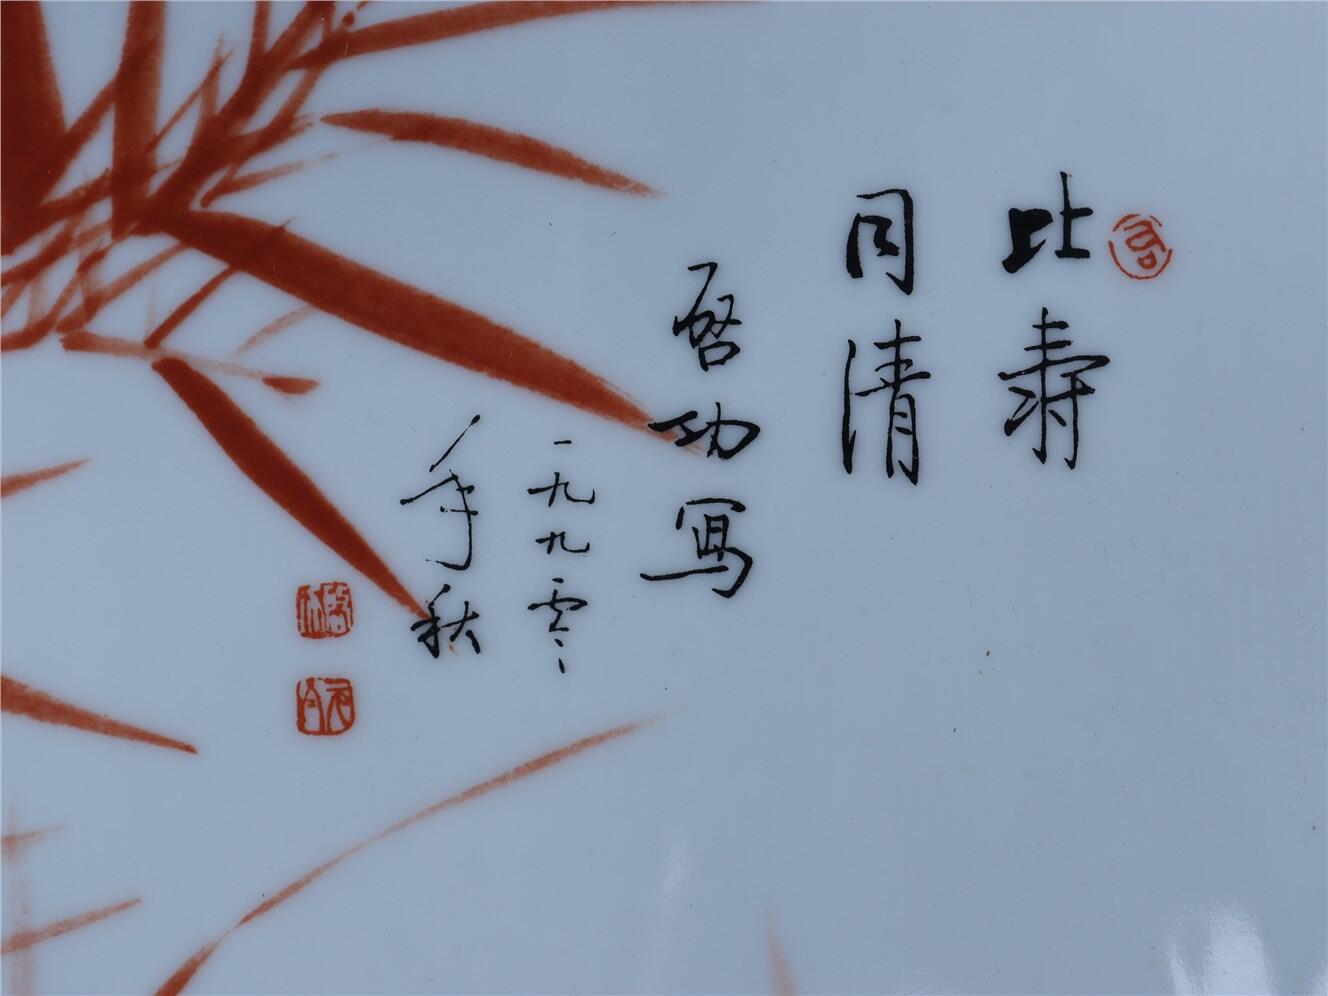 比寿
同清
启功写
一九九零
年秋